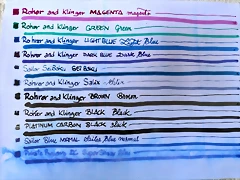 Rohrer and Klinger MAGENTA magenta
Rohrer and Klinger GREEN Green
Rohrer and Klinger LIGHT BLUE Light Blue
Rohrer and Klinger DARK BLUE Dark Blue
Sailor Sei Boku SEI BOKU
Rohrer and Klinger Salix Salix
Rohrer and Klinger BROWN Brown
Rohrer and Klinger BLACK Black
PLATINUM CARBON BLACK black
Sailor Blue NORMAL Sailor Blue normal